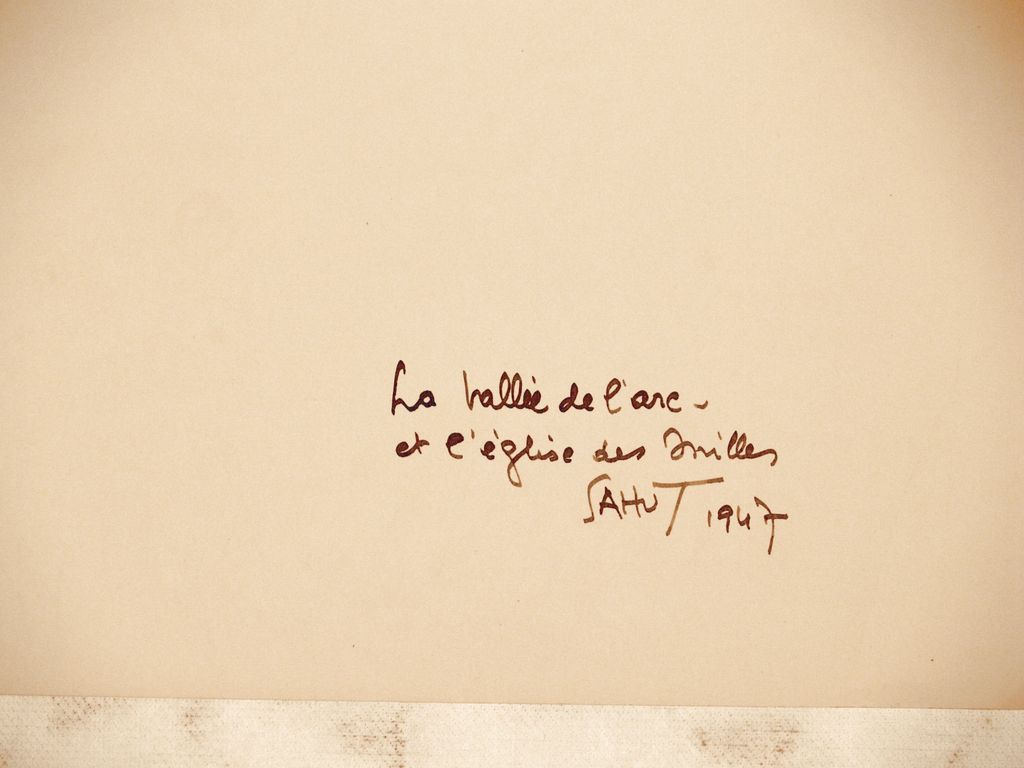 La Vallée de l'arc -
et l'église des Milles
SAHUT 1947